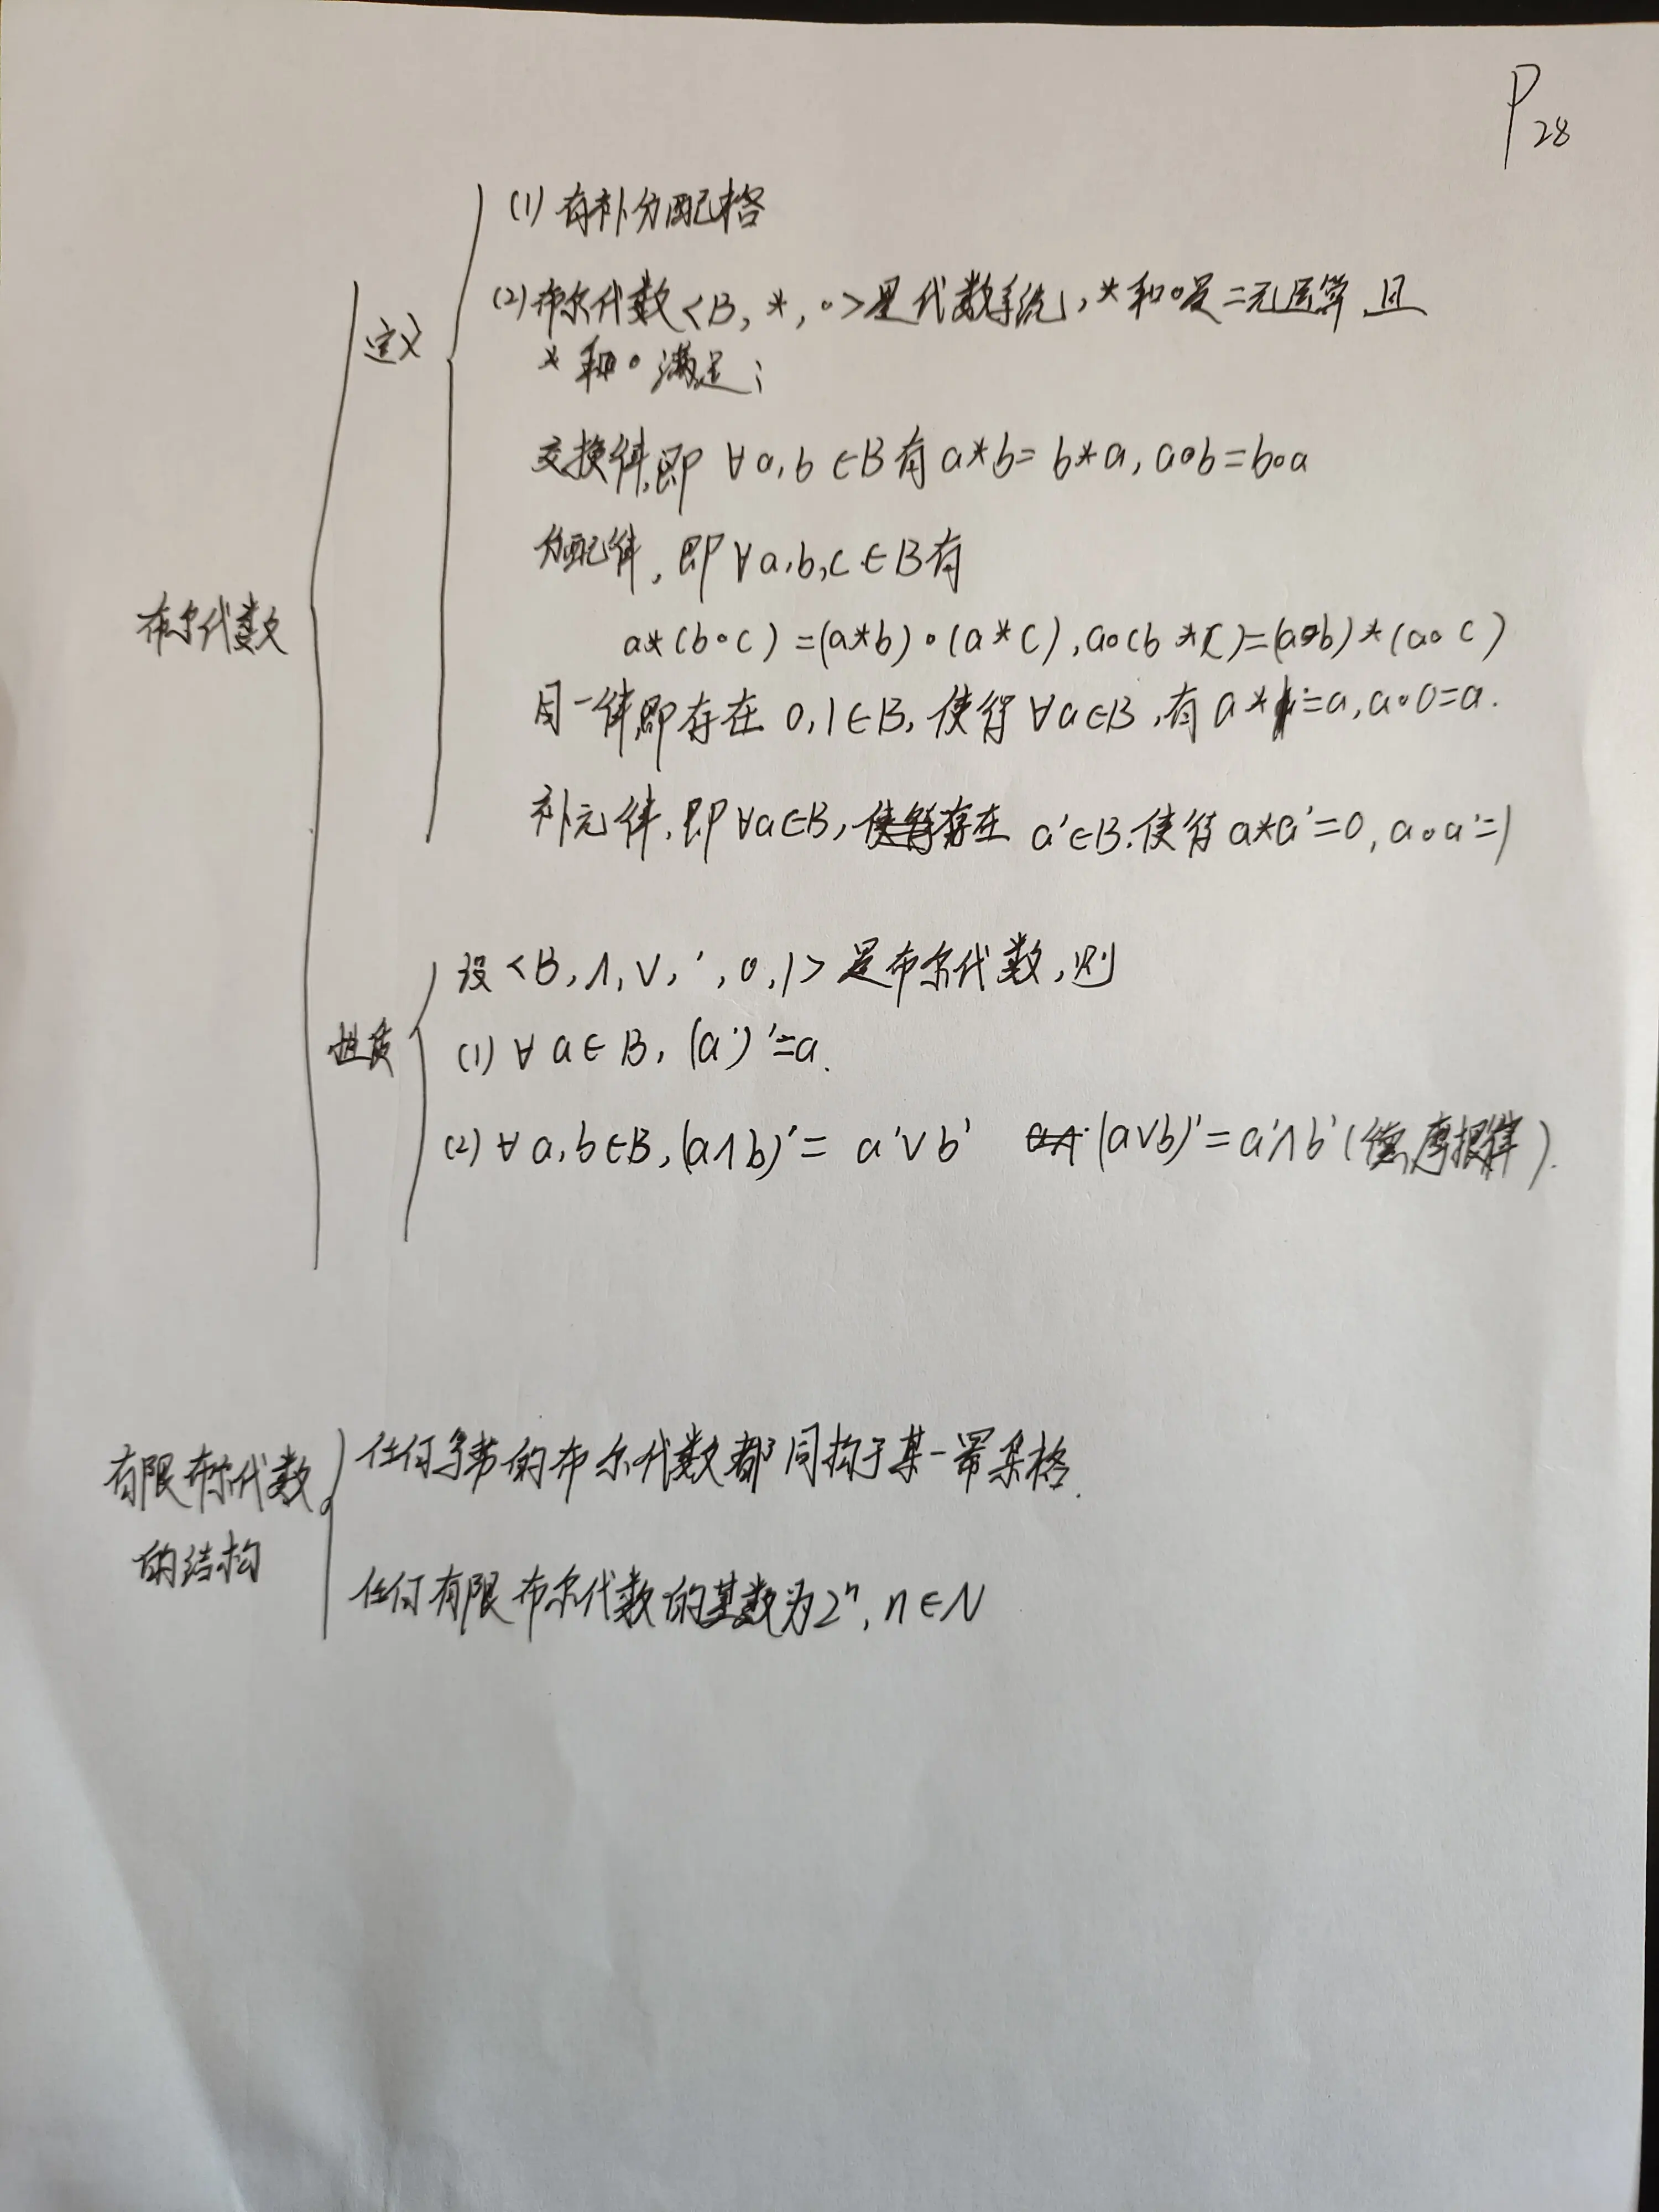 P28
(1) 有补分配格
(2) 布尔代数<B, *, ∘>是代数系统, *和∘是二元运算,且
定义
*和∘满足:
交换律,即 ∀a,b∈B有 a*b=b*a, a∘b=b∘a
分配律,即∀a,b,c∈B有
布尔代数
a*(b∘c)=(a*b)∘(a*c), a∘(b*c)=(a∘b)*(a∘c)
同一律,即存在 0,1∈B, 使得∀a∈B,有 a*1=a, a∘0=a.
补元律,即∀a∈B,存在 a'∈B.使得 a*a'=0, a∘a'=1
设<B,∧,∨,',0,1>是布尔代数,则
性质
(1) ∀a∈B, (a')'=a.
(2) ∀a,b∈B, (a∧b)'= a'∨b' (a∨b)'=a'∧b'(德摩根律).
任何的布尔代数都同构于某一幂集格.
有限布尔代数
的结构
任何有限布尔代数的基数为2ⁿ, n∈N